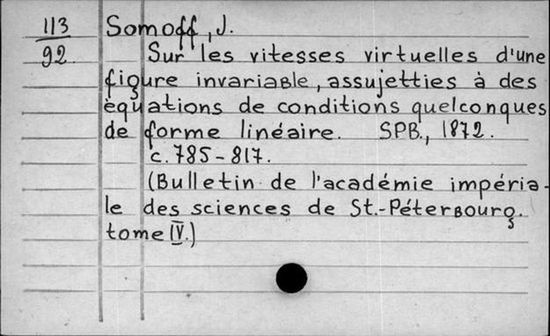 113
92.
Somoff, J.
Sur les vitesses virtuelles d'une
figure invariable, assujetties à des
équations de conditions quelconques
de forme linéaire. SPB., 1872.
c. 785-817.
(Bulletin de l'académie impéria-
le des sciences de St.-Pétersbourg.
tome IV.)